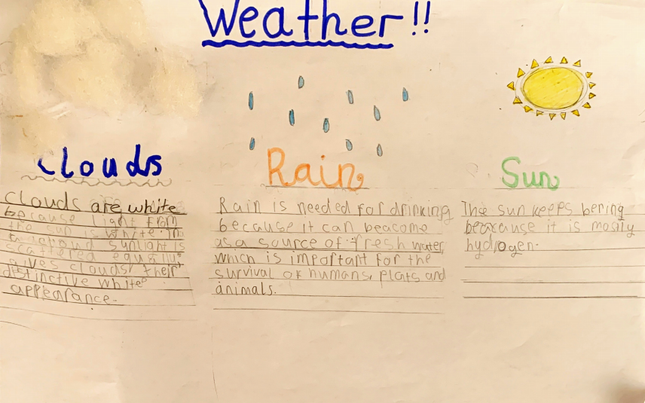 Weather!!
Clouds
Rain
Sun
Clouds are white
because light from
the sun is white. In
sunlight is
equally
gives clouds their
distinctive white
appearance.
Rain is needed for drinking
because it can beasome
as a source of fresh water
which is important for the
survival of humans, plats and
animals.
The sun keeps bering
because it is mostly
hydrogen.